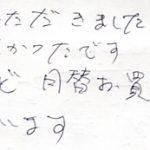 ただきました
かったです
ど 日替お買
います